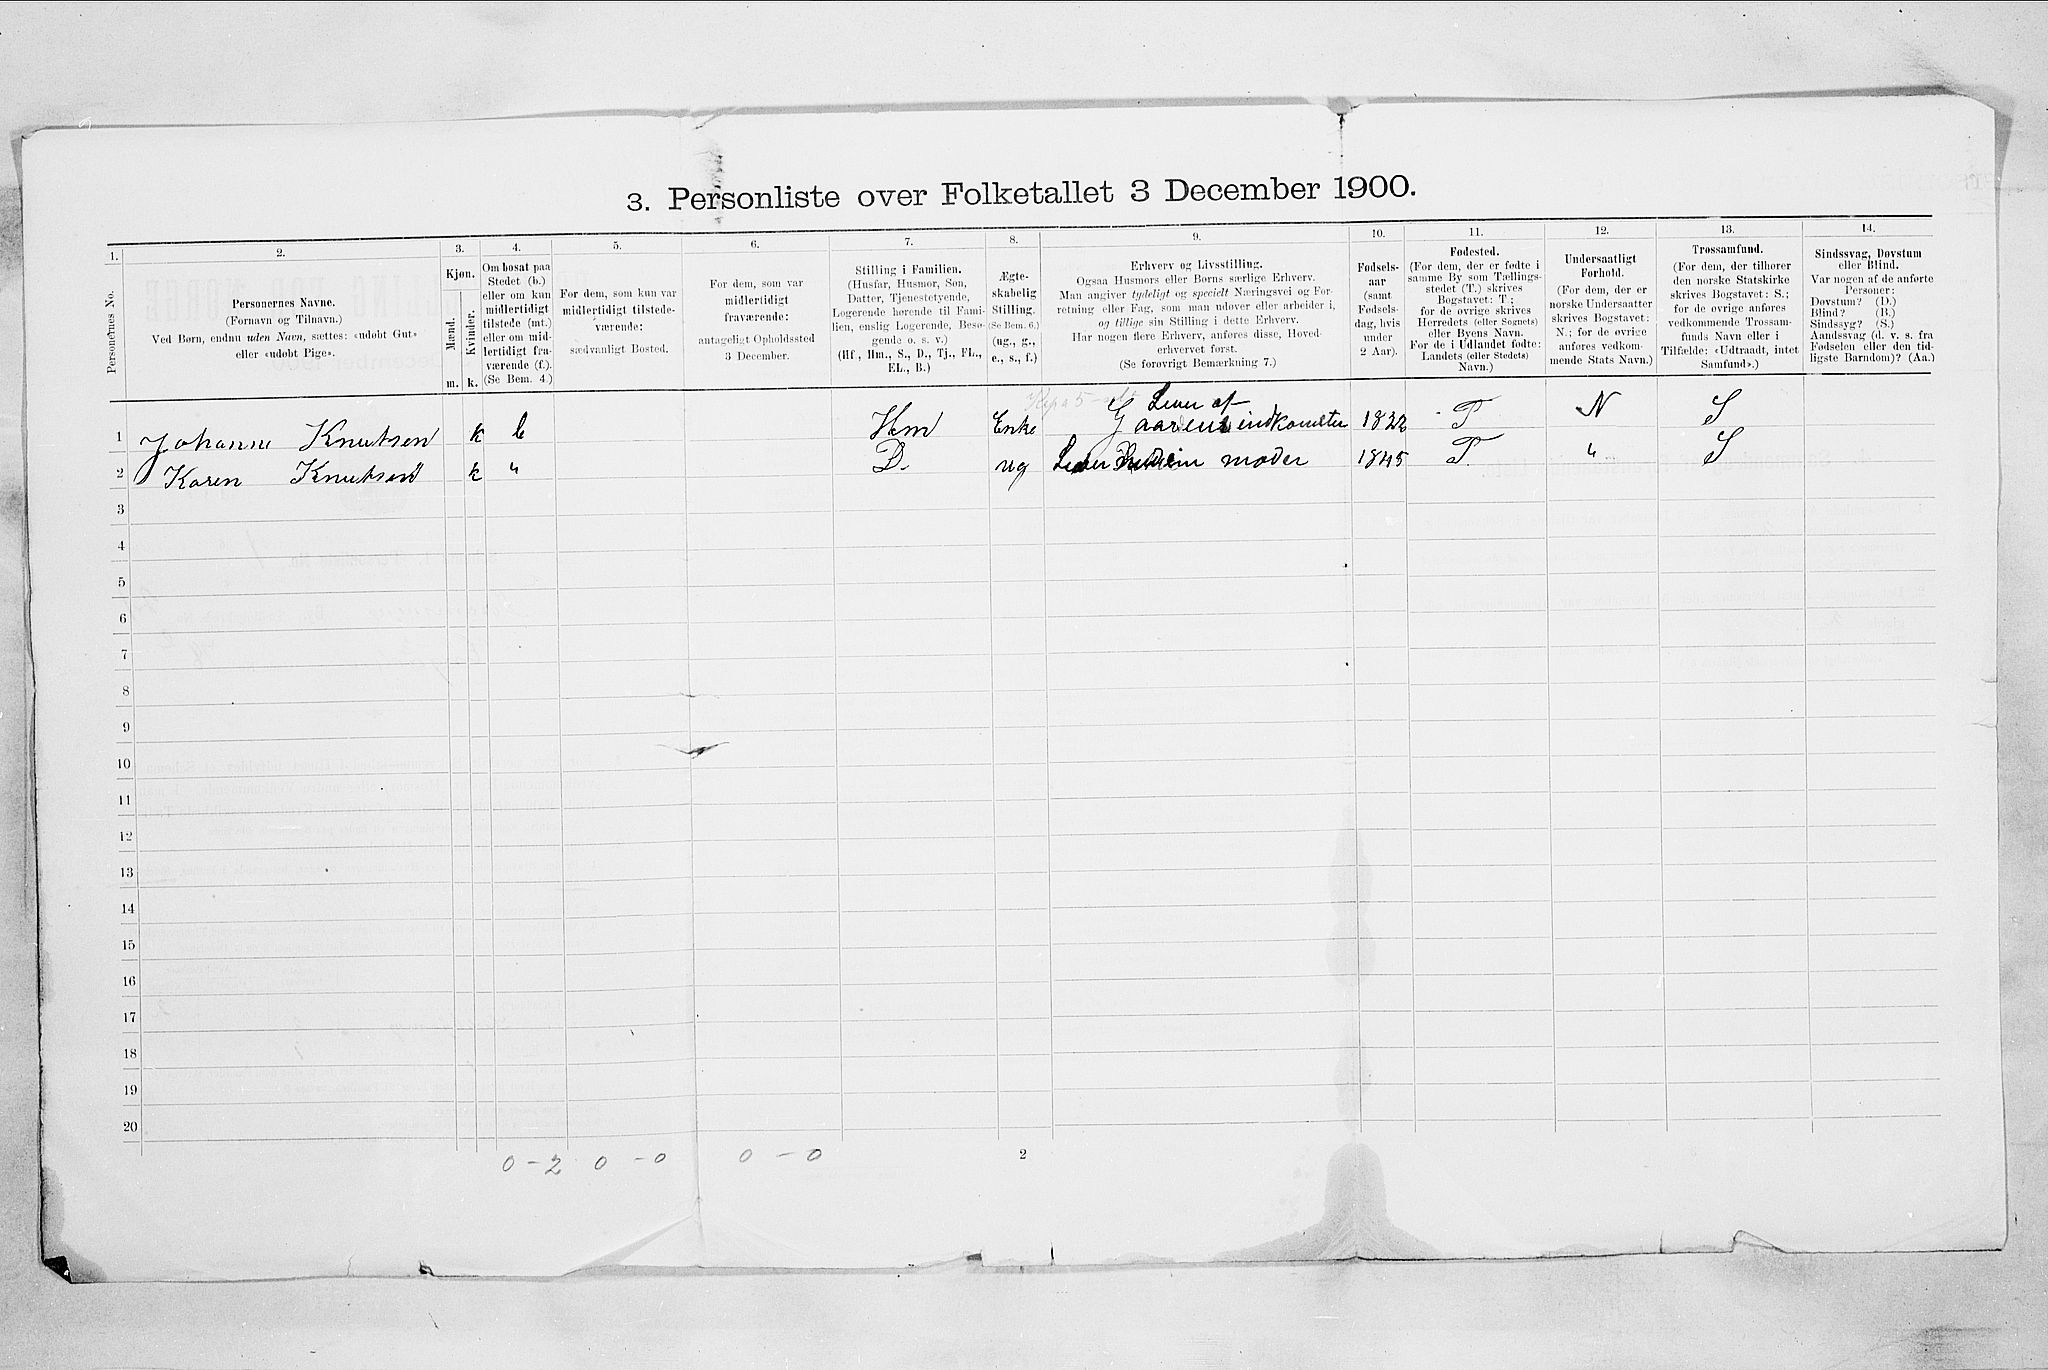 3. Personliste over Folketallet 3 December 1900.
1. 2. 3. 4. 5. 6. 7. 8. 9. 10. 11. 12. 13. 14.
Personernes No.
Personernes Navne.
(Fornavn og Tilnavn.)
Ved Børn, endnu uden Navn, sættes: «udøbt Gut»
eller «udøbt Pige».
Kjøn.
Mænd.
Kvinder.
m. k.
Om bosat paa
Stedet (b.)
eller om kun
midlertidigt
tilstede (mt.)
eller om mid-
lertidigt fra-
værende (f.).
(Se Bem. 4.)
For dem, som kun var
midlertidigt tilstede-
værende:
sædvanligt Bosted.
For dem, som var
midlertidigt
fraværende:
antageligt Opholdssted
3 December.
Stilling i Familien.
(Husfar, Husmor, Søn,
Datter, Tjenestetyende,
Logerende hørende til Fami-
lien, enslig Logerende, Besø-
gende o. s. v.)
(Hf., Hm., S., D., Tj., FL.,
EL., B.)
Ægte-
skabelig
Stilling.
(Se Bem. 6.)
(ug., g.,
e., s., f.)
Erhverv og Livsstilling.
Ogsaa Husmors eller Børns særlige Erhverv.
Man angiver tydeligt og specielt Næringsvei og For-
retning eller Fag, som man udøver eller arbeider i,
og tillige sin Stilling i dette Erhverv.
Har nogen flere Erhverv, anføres disse, Hoved-
erhvervet først.
(Se forøvrigt Bemærkning 7.)
Fødsels-
aar
(samt
Fødsels-
dag, hvis
under
2 Aar).
Fødested.
(For dem, der er fødte i
samme By som Tællings-
stedet (T.) skrives
Bogstavet: T.;
for de øvrige skrives
Herredets (eller Sognets)
eller Byens Navn.
For de i Udlandet fødte:
Landets (eller Stedets)
Navn.)
Undersaatligt
Forhold.
(For dem, der er
norske Undersaatter
skrives Bogstavet:
N.; for de øvrige
anføres vedkom-
mende Stats Navn.)
Trossamfund.
(For dem, der tilhører
den norske Statskirke
skrives Bogstavet: S.;
for de øvrige anføres
vedkommende Trossam-
funds Navn eller i
Tilfælde: «Udtraadt, intet
Samfund».)
Sindssvag, Døvstum
eller Blind.
Var nogen af de anførte
Personer:
Døvstum? (D.)
Blind? (B.)
Sindssyg? (S.)
Aandssvag (d. v. s. fra
Fødselen eller den tid-
ligste Barndom)? (Aa.)
Lever af
1 Johanne Knutsen k b Hm Enke Gaarens indkomster 1822 T N S
2 Karen Knutsen k " D. ug Lever sin moder 1845 T. " S
3
4
5
6
7
8
9
10
11
12
13
14
15
16
17
18
19
20
0 - 2 0 - 0 0 - 0 2